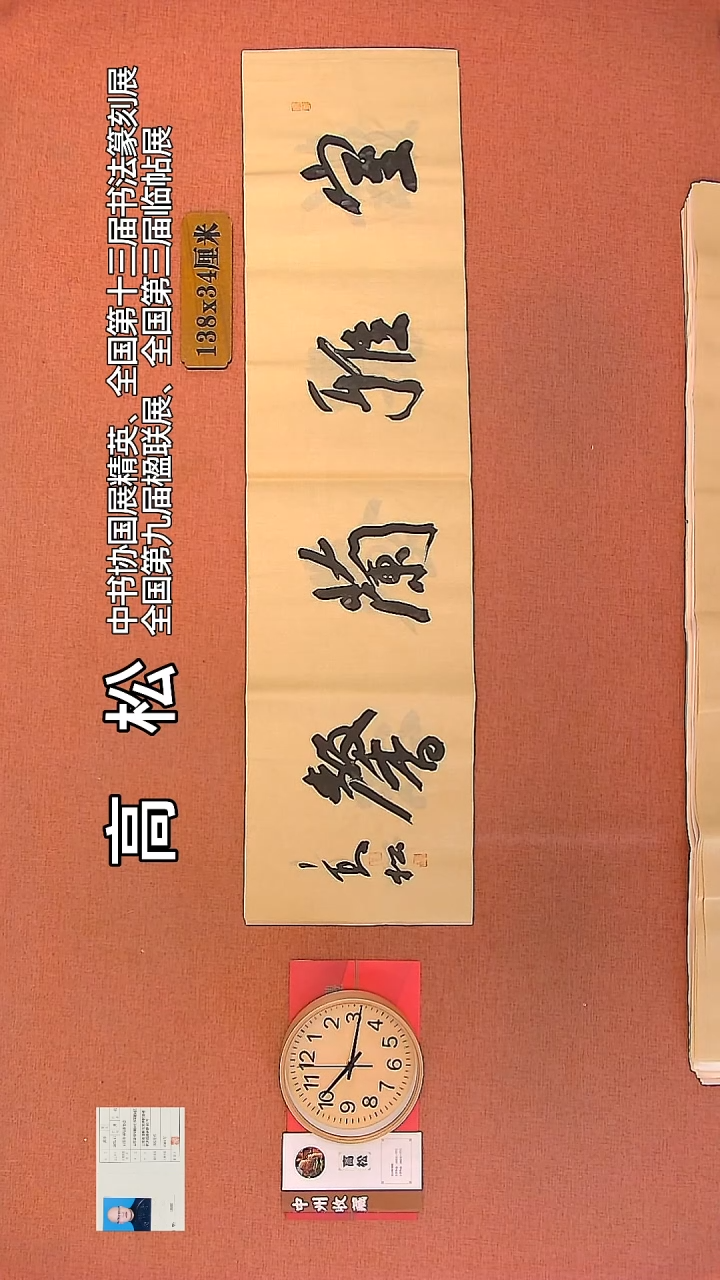 高 松
中书协国展精英、全国第十三届书法篆刻展
全国第九届楹联展、全国第三届临帖展
138x34厘米
室雅蘭馨
高松
12
1
2
3
4
5
6
7
8
9
10
11
高松
中州收藏